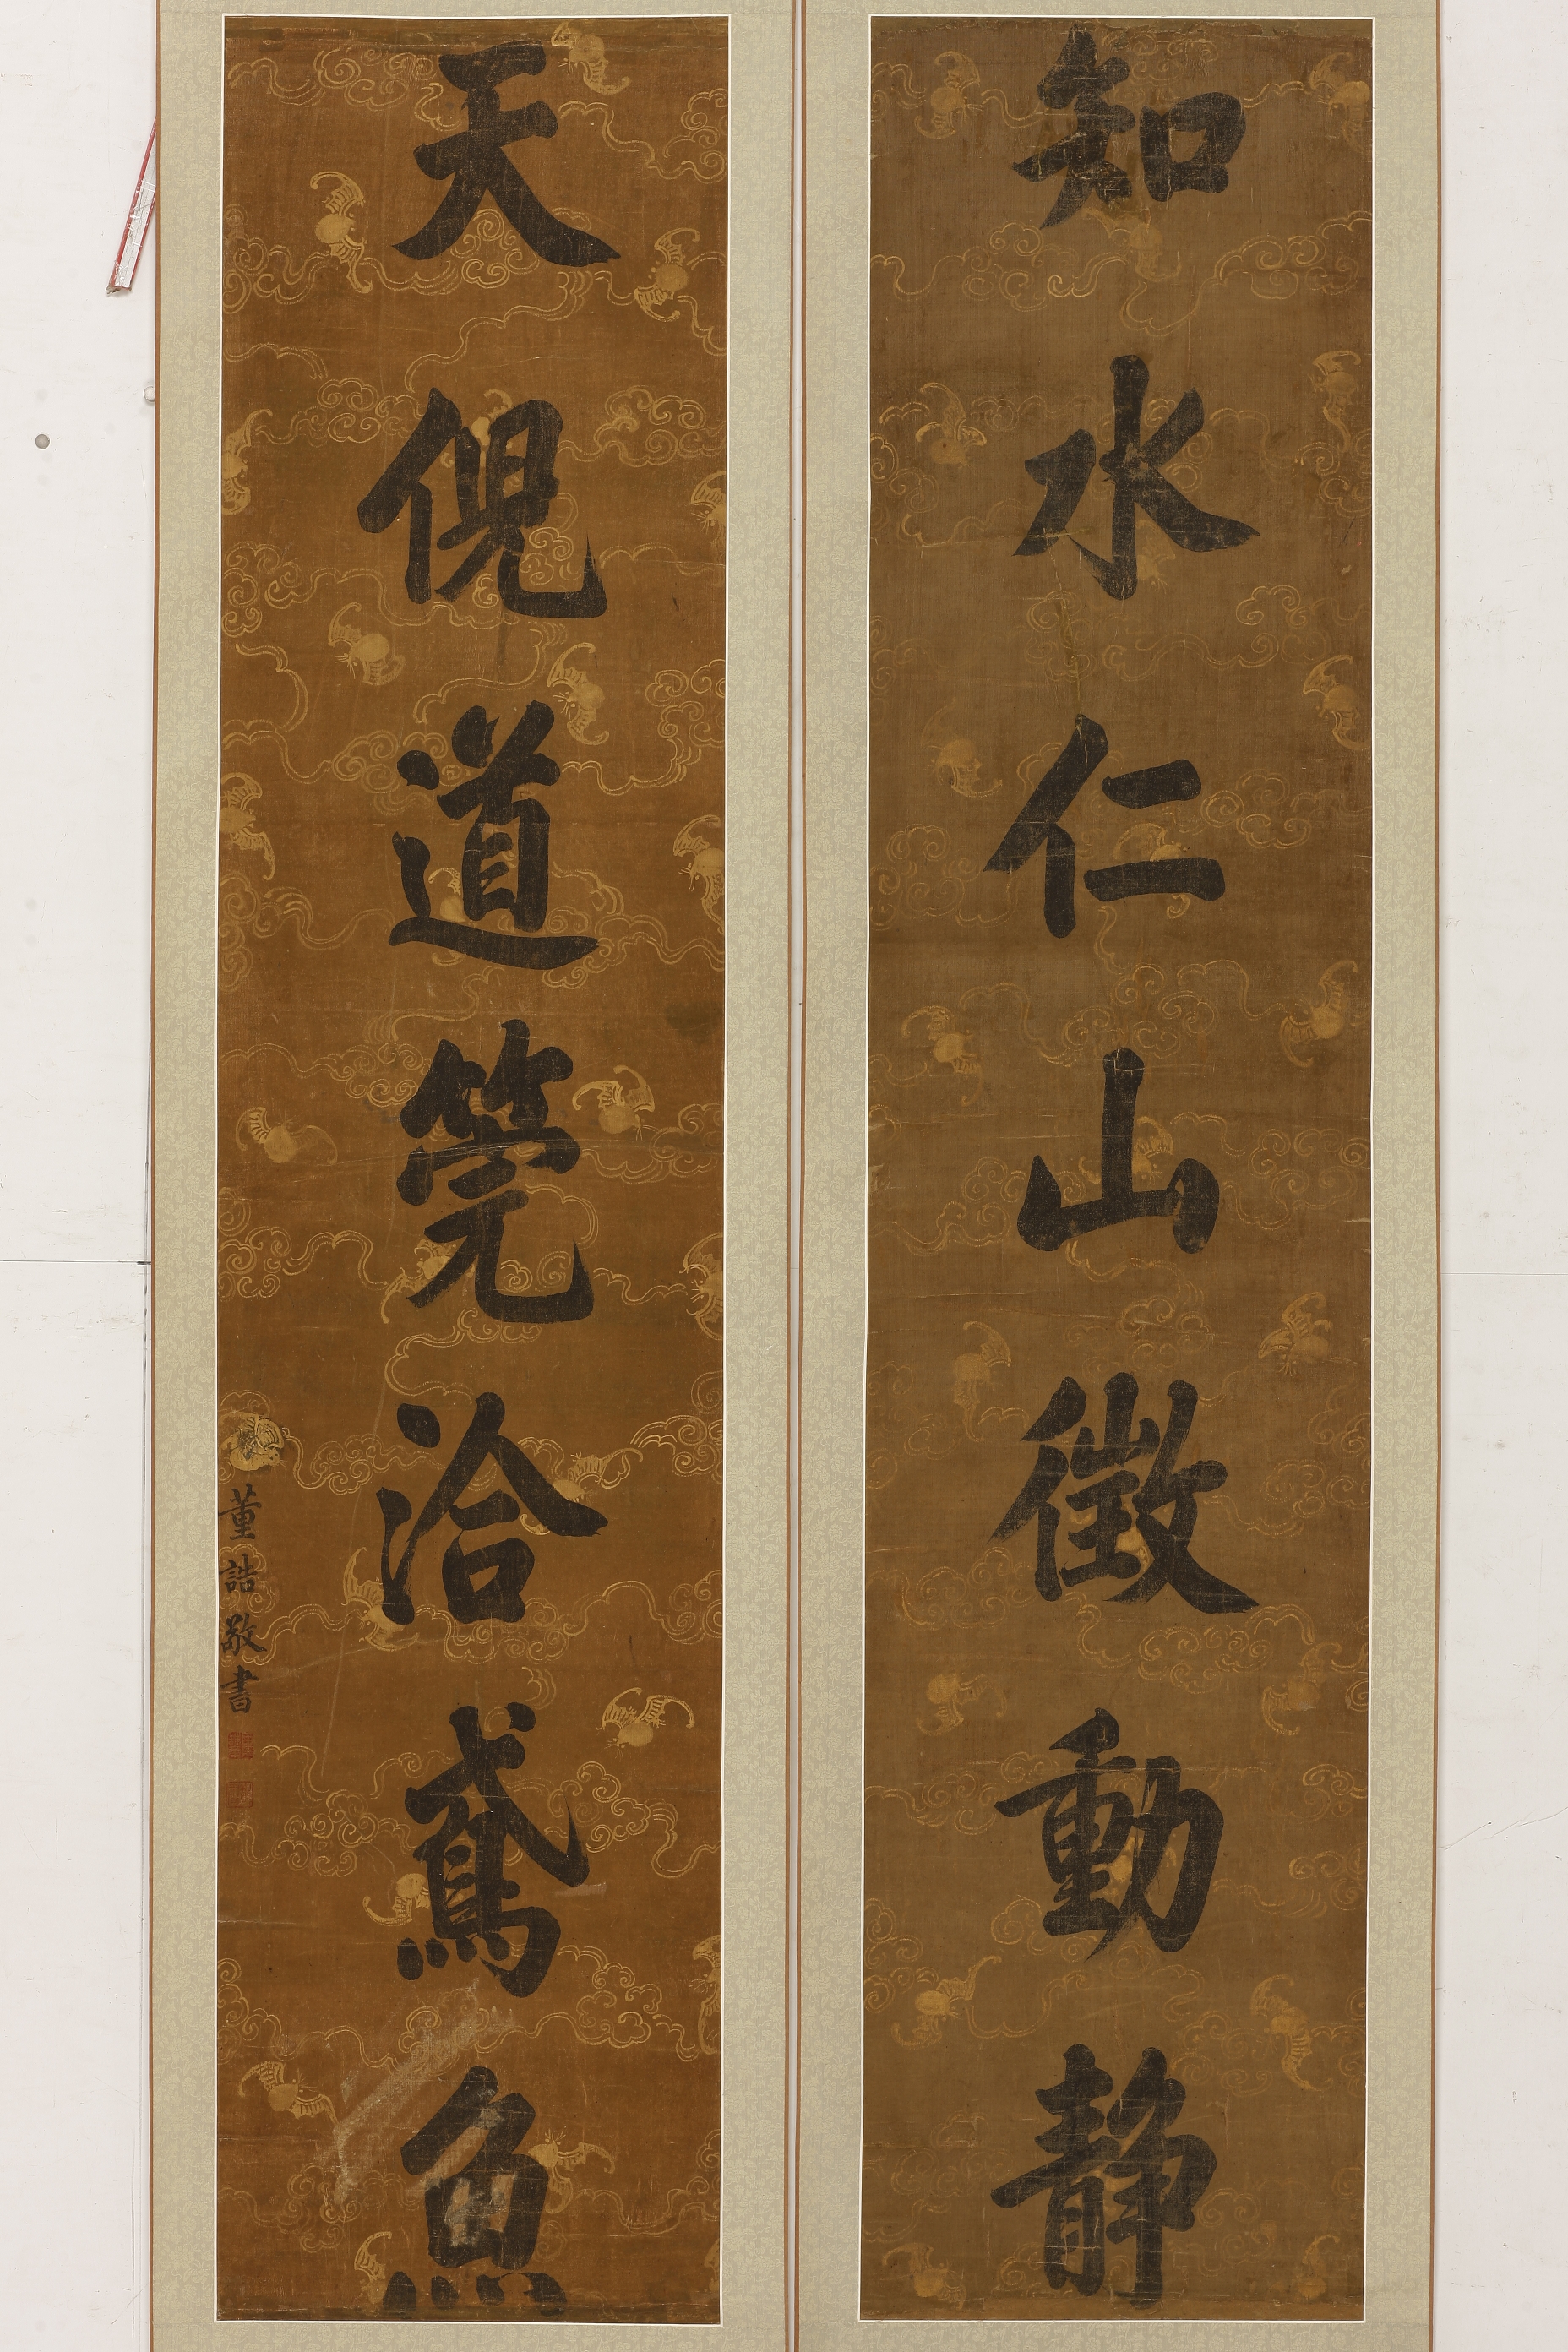 知水仁山徵動靜
天倪道筦洽鳶魚
董誥敬書